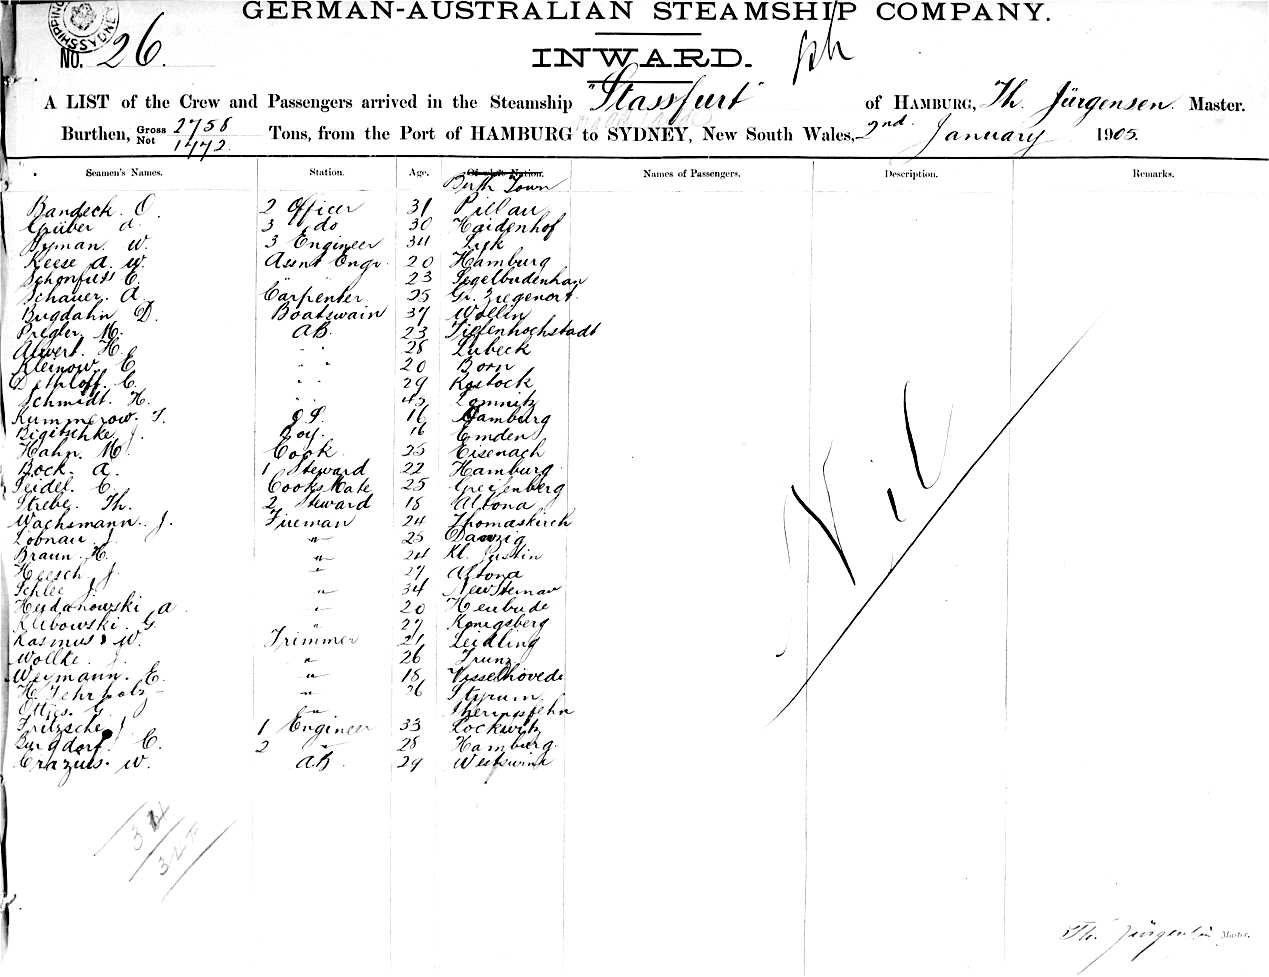 GERMAN-AUSTRALIAN STEAMSHIP COMPANY.
No. 26.
INWARD.
A LIST of the Crew and Passengers arrived in the Steamship "Stassfurt" of HAMBURG, Th. Jürgensen. Master.
Burthen, Gross 2758 Net 1772 Tons, from the Port of HAMBURG to SYDNEY, New South Wales, 2nd January 1905.
Seamen's Names. Station. Age. Of what Nation. Names of Passengers. Description. Remarks.
Birth Town
Bandeck. O. 2 Officer 31 Pillau
Grüber A. 3 do 30 Haidenhof
Dyman. W. 3 Engineer 34 Lyk
Keese A. W. Assnt Engr. 20 Hamburg
Schönfuss C. " " 23
Schauer. A. Carpenter 25 Gr. Ziegenort
Bugdahn D. Boatswain 37 Wollin
Pregler. M. A.B. 23 Tiefenhochstadt
Alwert. H. " " 28 Lübeck
Kleinow. C. " " 20 Born
Dethloff. C. " " 29 Rostock
Schmidt. H. " " 45 Lomnitz
Kummerow. F. O.S. 16 Hamburg
J. Boy. 16 Emden
Hahn. M. Cook 25 Eisenach
Bock. A. 1 Steward 22 Hamburg
Seidel. C. Cooks Mate 25 Greifenberg
Strebe. Th. 2 Steward 18 Altona
Wachsmann. J. Fireman 24 Thomaskirch
Lobnau. J. " 25 Danzig
Braun. H. " 24 Kl. Justin
Heesch J. " 27 Altona
Schlee J. " 34
Heydanowski A. " 20 Heubude
Klibowski. G. " 27 Königsberg
Rasmuss W. Trimmer 21 Leidling
Wollke. J. " 26 Trunz
Weymann. E. " 18 Visselhövede
H. " 26 Styrum
Ottjes. G. "
Fritzsche J. 1 Engineer 33 Lockwitz
Burgdorf. C. 2 " 28 Hamburg.
Crazius. W. A.B. 29
Nil
Th. Jürgensen Master.